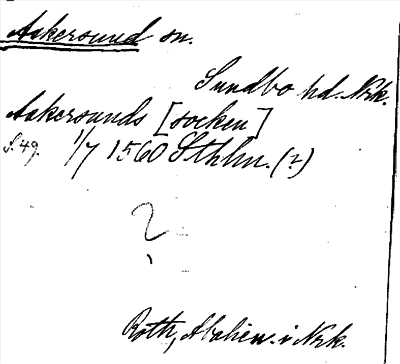 Askersund sn.
Sundbo hd. Nrk.
Askersunds [socken]
S. 49. 1/7 1560 Sthlm. (?)
?
Roth, i Nrk.